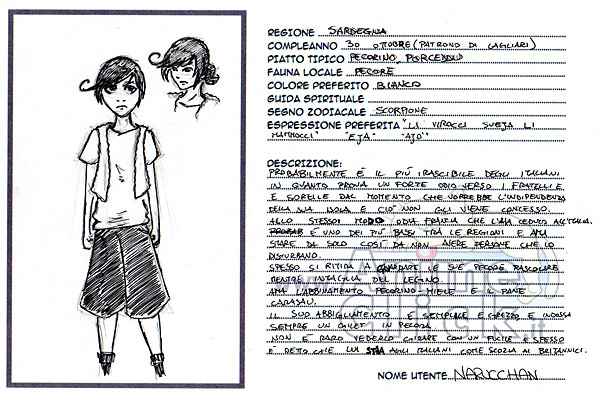 REGIONE SARDEGNA
COMPLEANNO 30 OTTOBRE (PATRONO DI CAGLIARI)
PIATTO TIPICO PECORINO, PORCEDDU
FAUNA LOCALE PECORE
COLORE PREFERITO BIANCO
GUIDA SPIRITUALE
SEGNO ZODIACALE SCORPIONE
ESPRESSIONE PREFERITA "LI VIROCCI SVEJA LI
"EJA" "AJO'"
DESCRIZIONE:
PROBABILMENTE È IL PIÙ IRASCIBILE DEGLI ITALIANI
IN QUANTO PROVA UN FORTE ODIO VERSO I FRATELLI E
E SORELLE DAL MOMENTO CHE VORREBBE L'INDIPENDENZA
DELLA SUA ISOLA E CIÒ NON GLI VIENE CONCESSO.
ALLO STESSO MODO ODIA FRANCIA CHE L'HA CEDUTO ALL'ITALIA.
È UNO DEI PIÙ BASSI TRA LE REGIONI E AMA
STARE DA SOLO COSÌ DA NON AVERE PERSONE CHE LO
DISTURBANO.
SPESSO SI RITIRA A GUARDARE LE SUE PECORE PASCOLARE
MENTRE INTAGLIA DEL LEGNO.
AMA L'ABBINAMENTO PECORINO-MIELE E IL PANE
CARASAU.
IL SUO ABBIGLIAMENTO È SEMPLICE E GREZZO E INDOSSA
SEMPRE UN GILET IN PECORA.
NON È RARO VEDERLO GIRARE CON UN FUCILE E SPESSO
È DETTO CHE LUI STA AGLI ITALIANI COME SCOZIA AI BRITANNICI.
NOME UTENTE NARUCCHAN